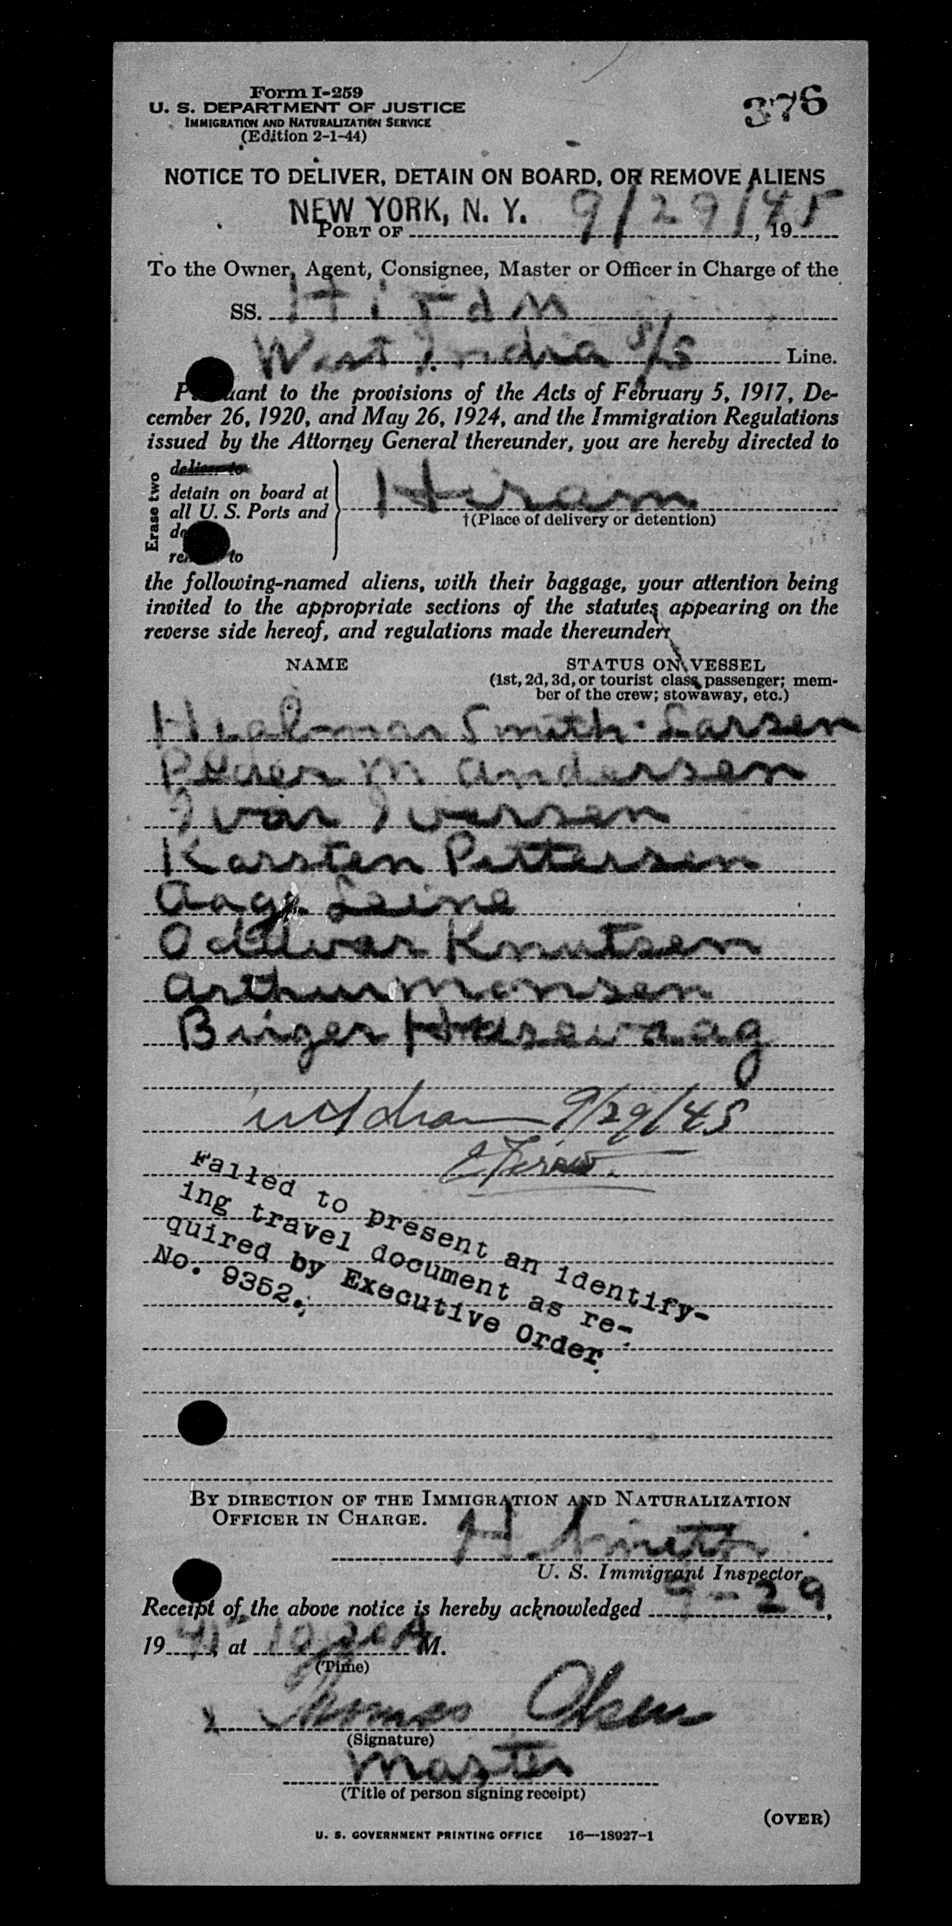 Form I-259
U. S. DEPARTMENT OF JUSTICE
IMMIGRATION AND NATURALIZATION SERVICE
(Edition 2-1-44)
376
NOTICE TO DELIVER, DETAIN ON BOARD, OR REMOVE ALIENS
NEW YORK, N. Y. 9/29/45
PORT OF , 19
To the Owner, Agent, Consignee, Master or Officer in Charge of the
SS. Hiram
West India S/S Line.
Pursuant to the provisions of the Acts of February 5, 1917, De-
cember 26, 1920, and May 26, 1924, and the Immigration Regulations
issued by the Attorney General thereunder, you are hereby directed to
Erase two
deliver to
detain on board at
all U. S. Ports and
to
Hiram
†(Place of delivery or detention)
the following-named aliens, with their baggage, your attention being
invited to the appropriate sections of the statutes appearing on the
reverse side hereof, and regulations made thereunder:
NAME STATUS ON VESSEL
(1st, 2d, 3d, or tourist class passenger; mem-
ber of the crew; stowaway, etc.)
Hjalmar Smith-Larsen
Peder M Andersen
Ivar Iversen
Karsten Pettersen
Aage Leine
Oddvar Knutsen
Arthur Monsen
Birger
9/29/45
Failed to present an identify-
ing travel document as re-
quired by Executive Order
No. 9352.
BY DIRECTION OF THE IMMIGRATION AND NATURALIZATION
OFFICER IN CHARGE.
H.
U. S. Immigrant Inspector.
Receipt of the above notice is hereby acknowledged 9-29,
1945, at 10 A M.
(Time)
x Thomas Olsen
(Signature)
Master
(Title of person signing receipt)
(OVER)
U. S. GOVERNMENT PRINTING OFFICE 16—18927-1